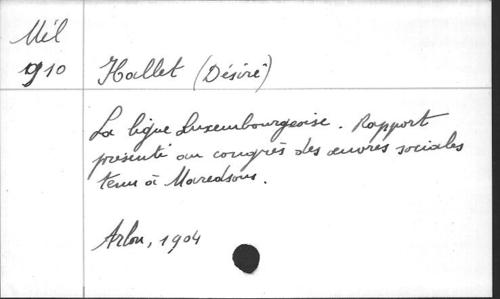 Mél
910
Hallet (Désiré)
La ligue Luxembourgeoise. Rapport
présenté au congrès des œuvres sociales
tenu à Maredsous.
Arlon, 1904